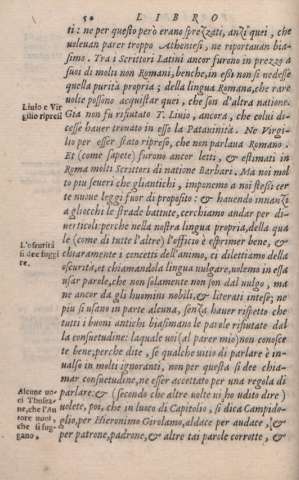 50 LIBRO
ti: ne per questo però erano sprezzati, anzi quei, che
uoleuan parer troppo Atheniesi, ne riportauan bia-
simo. Tra i Scrittori Latini ancor furono in prezzo a
suoi di molti non Romani, benche, in essi non si uedesse
quella purità propria; della lingua Romana, che rare
uolte possono acquistar quei, che son d'altra natione.
Liuio e Vir
gilio ripresi
Gia non fu rifiutato T. Liuio, ancora, che colui di-
cesse hauer trouato in esso la Patauinità. Ne Virgi-
lio per esser stato ripreso, che non parlaua Romano.
Et (come sapete) furono ancor letti, & estimati in
Roma molti Scrittori di natione Barbari. Ma noi mol
to piu seueri che gliantichi, imponemo a noi stessi cer
te nuoue leggi fuor di proposito: & hauendo innanzi
a gliocchi le strade battute, cerchiamo andar per di-
uerticoli: perche nella nostra lingua propria, della qua
L'oscurità
si dee fuggi
re.
le (come di tutte l'altre) l'officio è esprimer bene, &
chiaramente i concetti dell'animo, ci dilettiamo della
oscurità, et chiamandola lingua uulgare, uolemo in essa
usar parole, che non solamente non son dal uulgo, ma
ne ancor da gli huomini nobili, & literati intese; ne
piu si usano in parte alcuna, senza hauer rispetto che
tutti i buoni antichi biasimano le parole rifiutate dal
la consuetudine: laquale uoi (al parer mio) non conosce
te bene, perche dite, se qualche uitio di parlare è in-
ualso in molti ignoranti, non per questa si dee chia-
mar consuetudine, ne esser accettato per una regola di
Alcune uo-
ci Thusca-
ne, che l'Au
tore uuol,
che si fug-
gano,
parlare. & (secondo che altre uolte ui ho udito dire)
uolete, poi, che in luoco di Capitolio, si dica Campido-
glio, per Hieronimo Girolamo, aldace per audace, &
per patrone, padrone, & altre tai parole corrotte, &